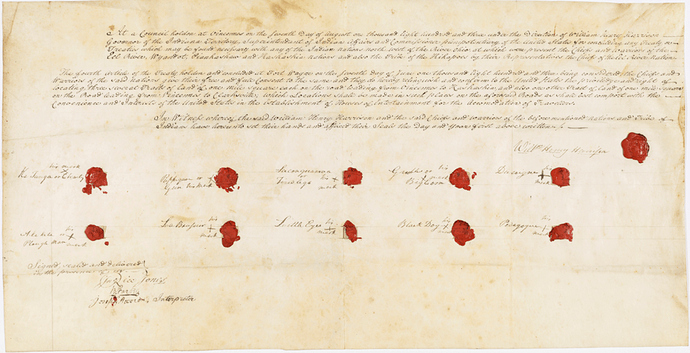 At a Council holden at Vincennes on the Seventh Day of August one thousand eight hundred and three under the Direction of William Henry Harrison
Governor of the Indiana Territory, Superintendent of Indian Affairs and Commissioner plenipotentiary of the United States for concluding any Treaty or
Treaties which may be found necessary with any of the Indian nations north west of the River Ohio, at which were present the Chiefs and warriors of the
Eel River, Wyandot, Piankashaw and Kaskaskia nations and also the Tribe of the Kikapoos by their Representatives the Chiefs of the Eel River Nation
The fourth Article of the Treaty holden and concluded at Fort Wayne on the Seventh day of June one thousand eight hundred and three being considered the Chiefs and
Warriors of the said nations give their free and full Consent to the same and they do hereby relinquish and confirm to the United States the privilege and right of
locating three several Tracts of Land of one mile Square each on the road leading from Vincennes to Kaskaskia and also one other Tract of Land of one mile Square
on the Road leading from Vincennes to Clarksville, which Locations shall be made in such places on the aforesaid Roads as shall best comport with the
Convenience and Interest of the United States in the Establishment of Houses of Entertainment for the Accommodation of Travellers
In Witness whereof, the said William Henry Harrison and the said Chiefs and warriors of the before mentioned nations and Tribe of
Indians have hereunto set their hands and affixed their Seals the Day and Year first above written
Will^m Henry Harrison
his
mark
his
mark
his
mark
his
mark
mark
his
mark
his
mark
Little Eyes his
mark
Black Dog his
mark
Signed, sealed and delivered
in the presence of
Rice Jones
Interpreter